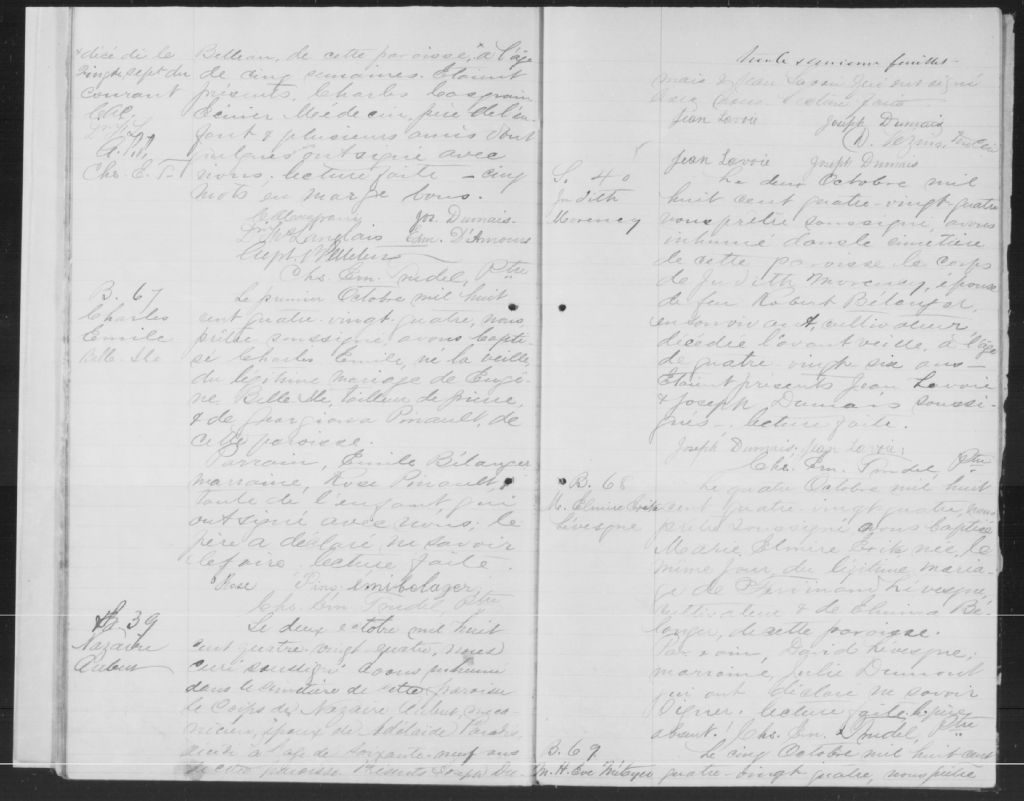 & décédé le
vingt sept du
courant
Chs. E. T.
Billeau, de cette paroisse, à l'âge
de cinq semaines. Étaient
présents, Charles Casgrain
Écuier Médecin, père de l'en-
fant & plusieurs amis dont
quelques ont signé avec
nous. lecture faite — cinq
mots en marge bons.
Jos. Dumais
Langlais Em. D'Amours
Chs. Em. Trudel, Ptre
B. 67
Charles
Emile
Belle Ile
Le premier Octobre mil huit
cent quatre-vingt-quatre, nous
prêtre soussigné avons bapti-
sé Charles Emile, né la veille,
du légitime mariage de Eugè-
ne Belle Ile, tailleur de pierre,
& de Georgiana Pinault, de
cette paroisse.
Parrain, Emile Bélanger
marraine, Rose Pinault,
tante de l'enfant, qui
ont signé avec nous; le
père a déclaré ne savoir
le faire. lecture faite.
Rose Pino emilbelager
Chs. Em. Trudel, Ptre
S. 39
Nazaire
Aubut
Le deux octobre mil huit
cent quatre vingt quatre, nous
curé soussigné avons inhumé
dans le cimetière de cette paroisse
le corps de Nazaire Aubut,
époux de Adélaide
à l'age de soixante-neuf ans
de cette paroisse. Présents Joseph Du-
trente deuxième feuillet
mais & Jean Lavoie qui ont signé
avec nous lecture faite
Jean Lavoie Joseph Dumais
Jean Lavoie Joseph Dumais
S. 40
Judith
Morency
Le deux Octobre mil
huit cent quatre-vingt-quatre
nous prêtre soussigné, avons
inhumé dans le cimetière
de cette paroisse le corps
de Judith Morency, épouse
de feu Robert Bélanger,
en son vivant, cultivateur
décédée l'avant veille, à l'âge
de quatre-vingt six ans —
Étaient présents Jean Lavoie
& Joseph Dumais soussi-
gnés. lecture faite.
Joseph Dumais, Jean Lavoie
Chs. Em. Trudel, Ptre
B. 68
M. Elmire Exite
Lévesque
Le quatre Octobre mil huit
cent quatre-vingt quatre, nous
prêtre soussigné avons baptisé
Marie, Elmire Exite née, le
même jour du légitime maria-
ge de Ferdinand Lévesque,
cultivateur & de Elmina Bé-
langer, de cette paroisse.
Parrain, David Lévesque;
marraine, Julie Dumont
qui ont déclaré ne savoir
signer. lecture faite. le père
absent. Chs. Em. Trudel, Ptre
B. 69
M. H. Eve Métayer
Le cinq Octobre mil huit cent
quatre-vingt quatre, nous prêtre